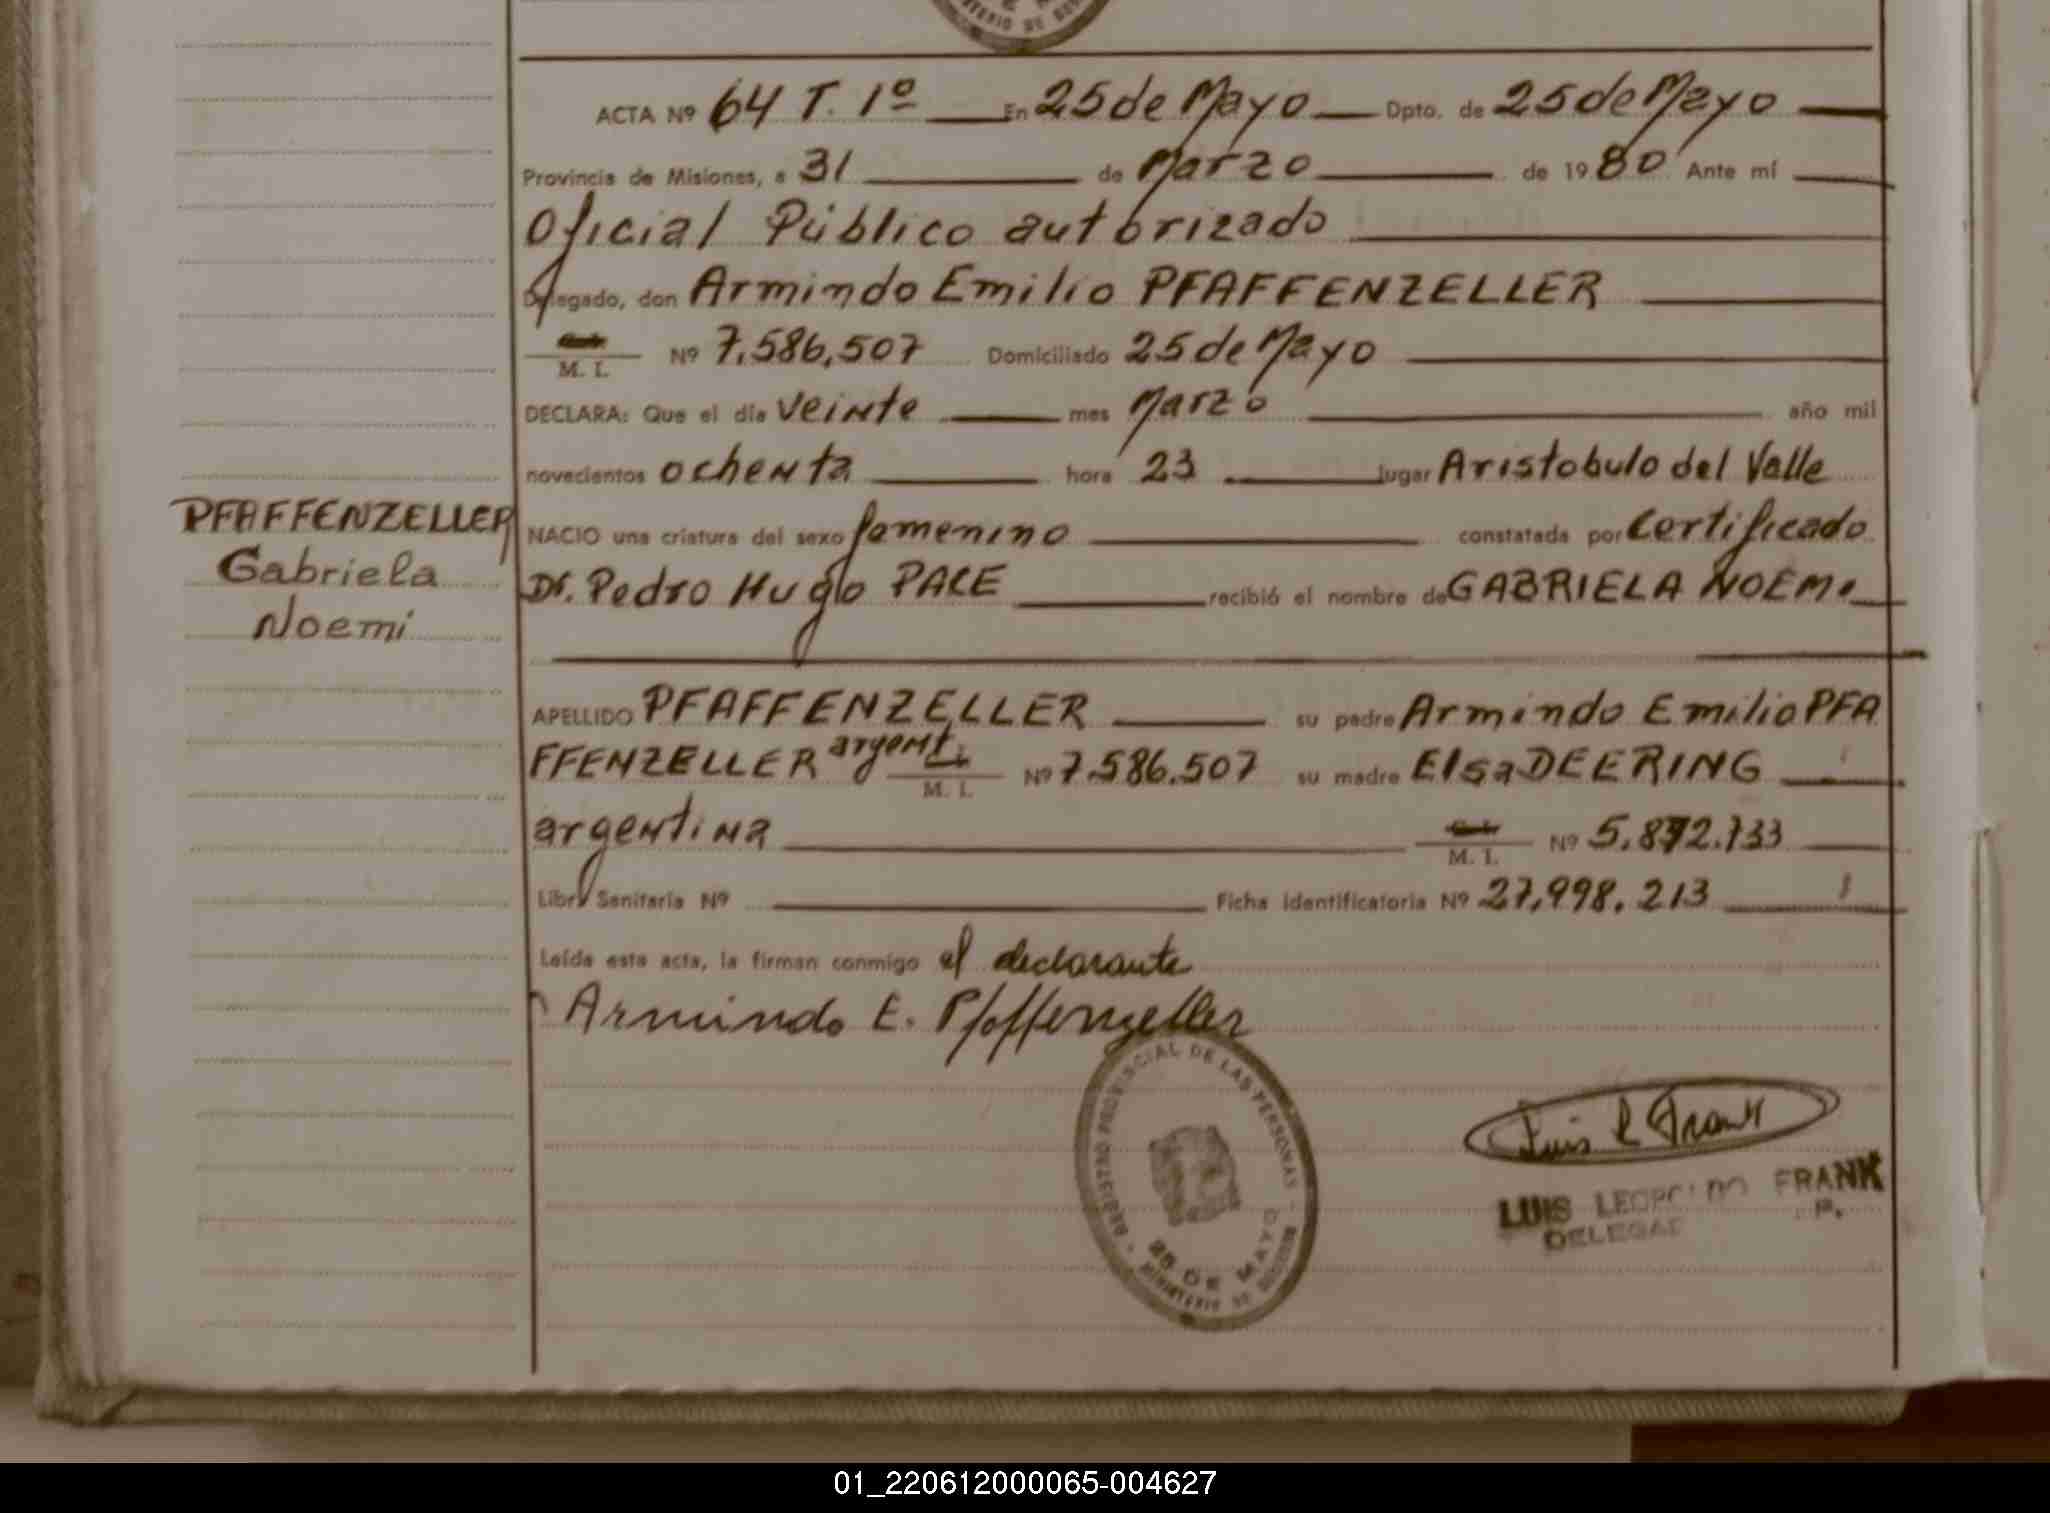 MINISTERIO DE
ACTA Nº 64 T. 1º En 25 de Mayo Dpto. de 25 de Mayo
Provincia de Misiones, a 31 de Marzo de 1980 Ante mí
Oficial Público autorizado
Delegado, don Armindo Emilio PFAFFENZELLER
M. I. Nº 7.586.507 Domiciliado 25 de Mayo
DECLARA: Que el día veinte mes Marzo año mil
novecientos ochenta hora 23 lugar Aristobulo del Valle
PFAFFENZELLER
Gabriela
Noemi
NACIO una criatura del sexo femenino constatada por Certificado
Dr. Pedro Hugo PACE recibió el nombre de GABRIELA NOEMI
APELLIDO PFAFFENZELLER su padre Armindo Emilio PFA
FFENZELLER argent. M. I. Nº 7.586.507 su madre Elsa DEERING
argentina M. I. Nº 5.872.733
Libr. Sanitaria Nº Ficha identificatoria Nº 27.998.213
Leída esta acta, la firman conmigo el declarante
Armindo E. Pfaffenzeller
REGISTRO PROVINCIAL DE LAS PERSONAS
25 DE MAYO
MINISTERIO DE GOBIERNO
Luis L Frank
LUIS LEOPOLDO FRANK
DELEGADO
01_220612000065-004627